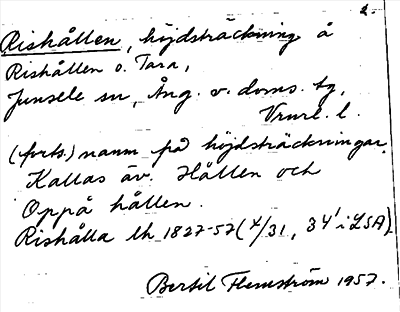 2.
Rishållen, höjdsträckning å
Rishållen o. Tara,
Junsele sn, Ång. v. doms. tg,
Vrnrl. l.
(forts.) namn på höjdsträckningar.
Kallas äv. Hållen och
Oppå hållen.
Rishålla lk 1827-57 (X/31, 34' i LSA)
Bertil Flemström 1957.